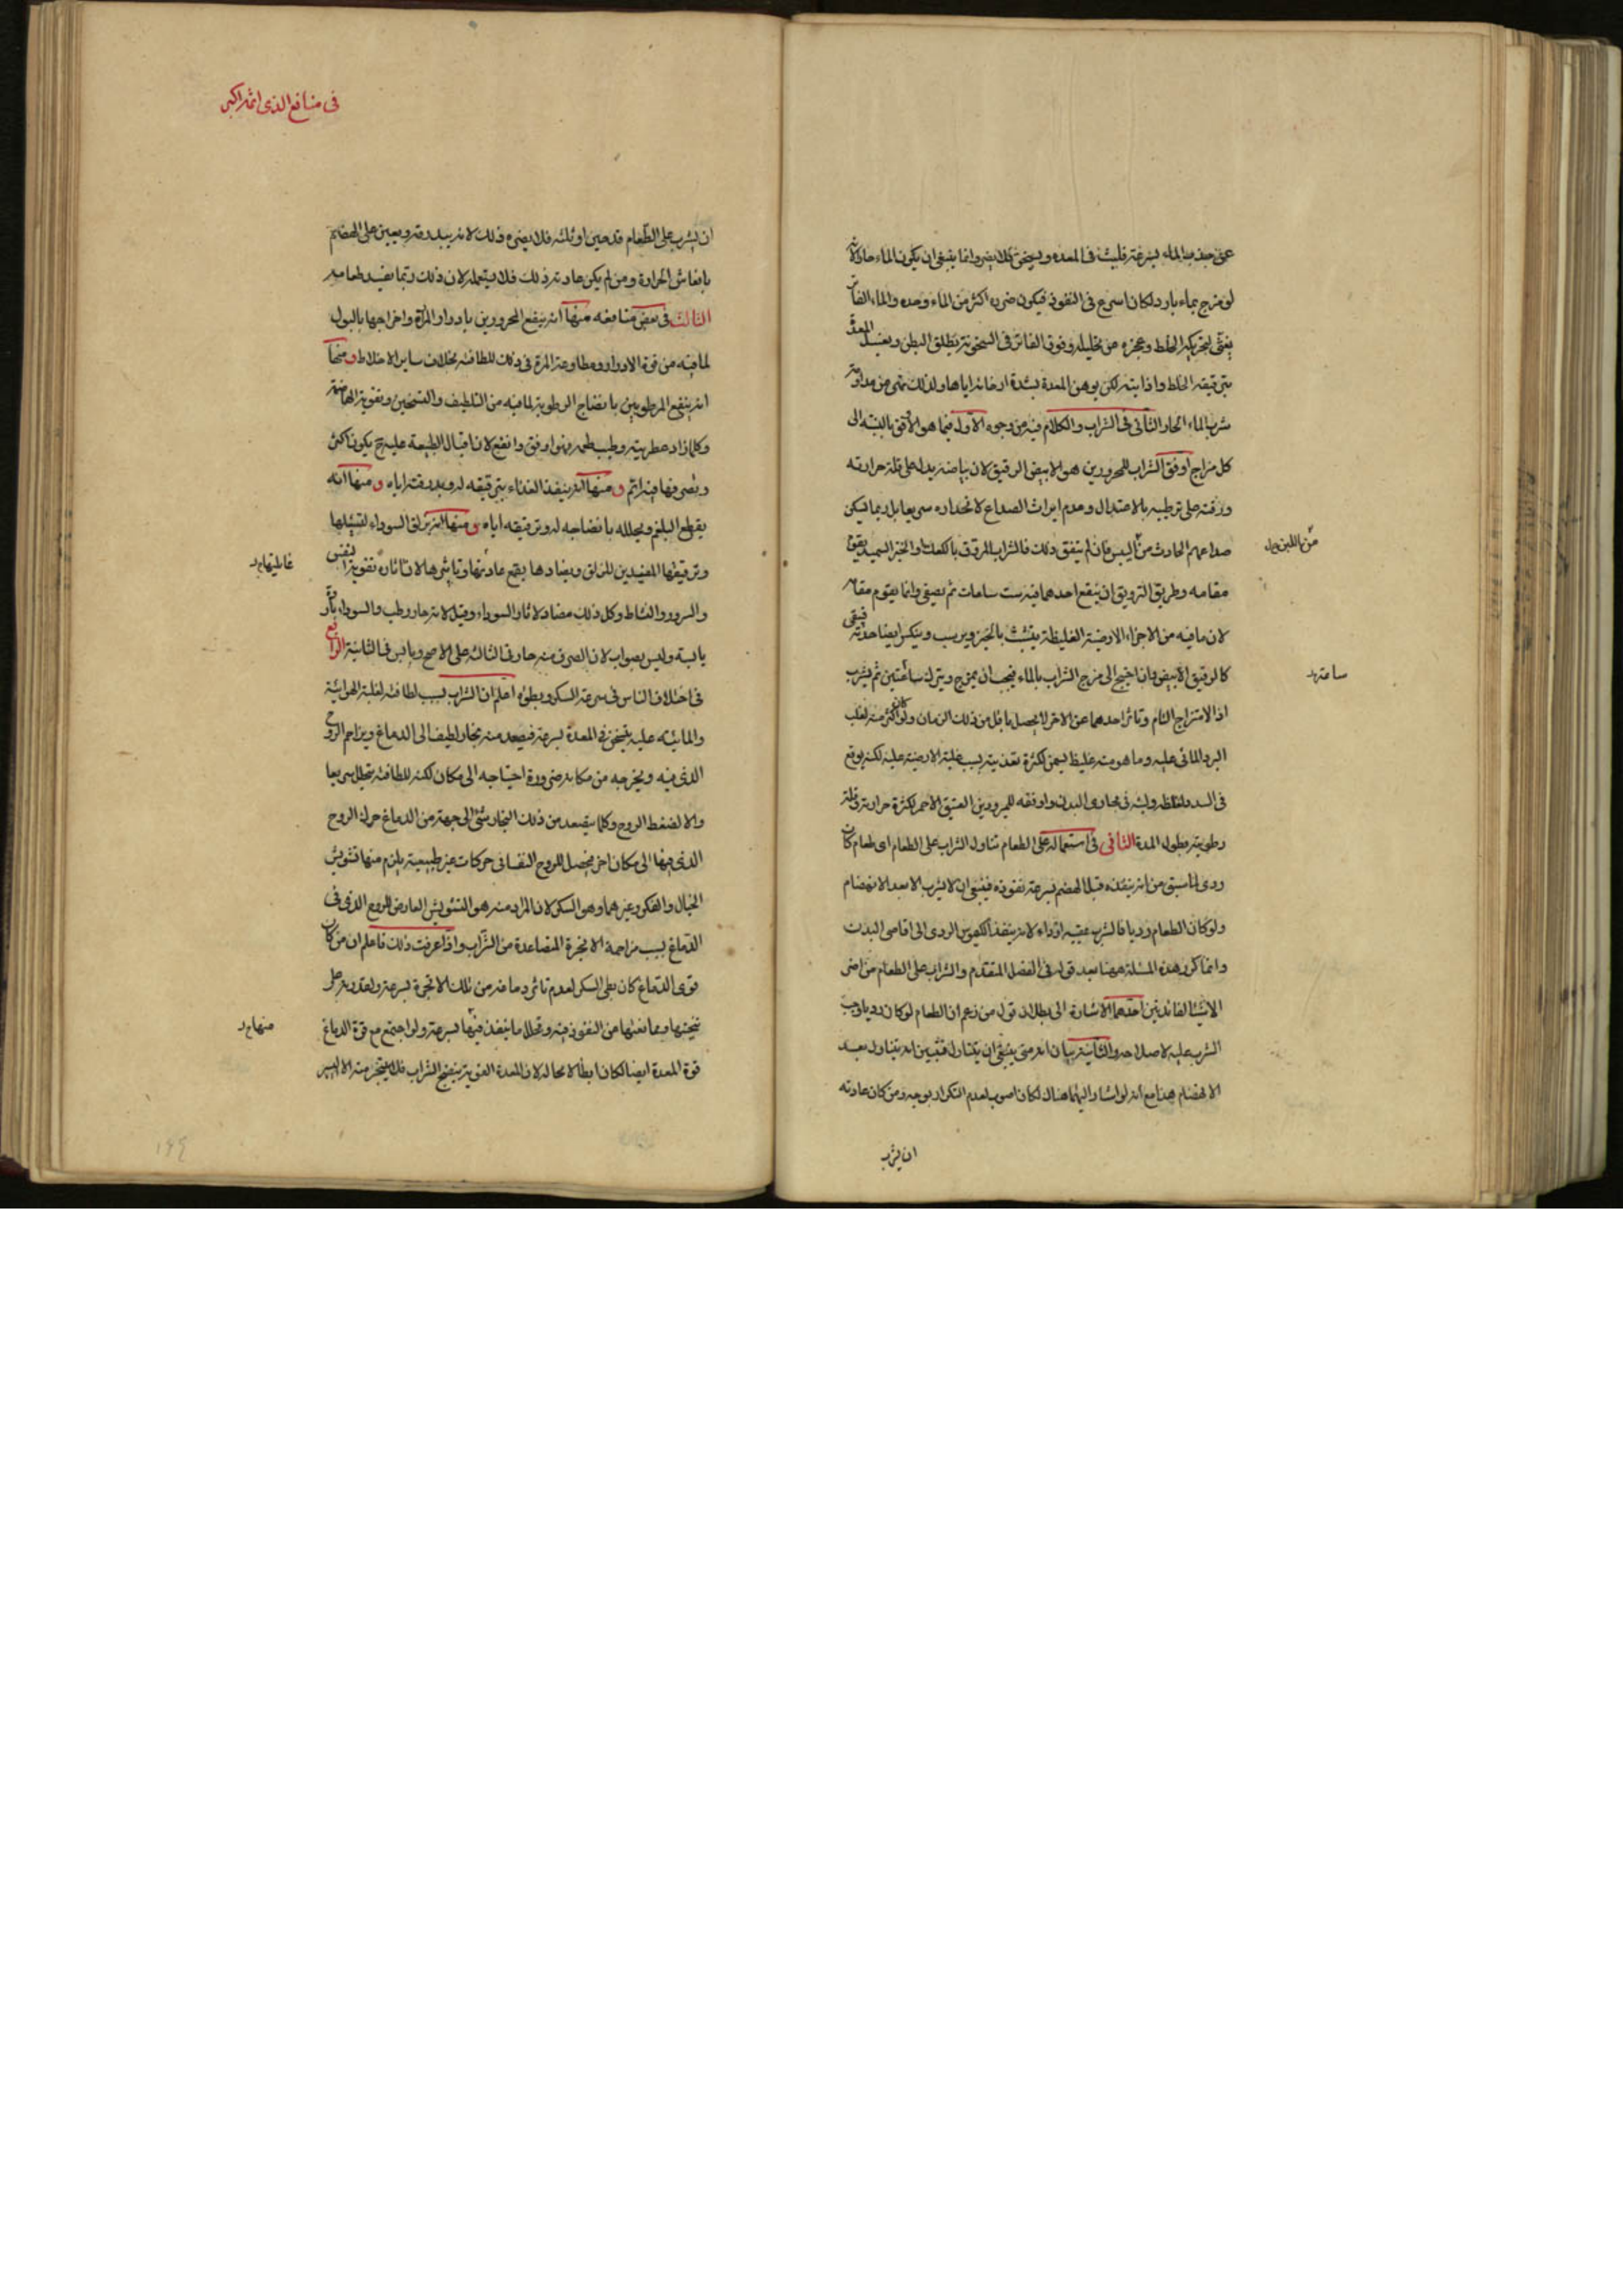 عن جذب الماء بسرعة فلبث فى المعده ويسخن كلا يضر وانما ينبغى ان يكون الماء حارا لانه
لو مزج بماء بارد لكان اسرع فى النفوذ فيكون ضرره اكثر من الماء وحده والماء الفاتر
يغثى لتحريكه الخلط وعجزه عن تحليله وفوق الفاتر فى السخونة يطلق البطن ويغسل المعدة
بترقيقه الخلط واذابته لكن يوهن المعدة بشدة ارخائه اياها ولذلك نهى عن مداومة
شرب الماء الحار الثانى فى الشراب والكلام فيه من وجوه الاول فيما هو الاوفق بالنسبة الى
كل مزاج اوفق الشراب للمحرورين هو الابيض الرقيق لان بياضه يدل على قلة حرارته
ورقته على ترطيبه بالاعتدال وعدم ايراث الصداع لانحداره سريعا بل ربما ليسكن
صداعهم الحادث من اليبس فان لم يتفق ذلك فالشراب المروق بالكعك او الخبز السميد يقوم
مقامه وطريق الترويق ان ينقع احدهما فيه ست ساعات ثم يصفى وانما يقوم مقامه
لان ما فيه من الاجزاء الارضية الغليظة يتشبث بالخبز ويرسب وينكسر ايضا حدته فيبقى
كالرقيق الابيض وان احتيج الى مزج الشراب بالماء فيجب ان يمزج ويترك ساعتين ثم يشرب
اذ الامتزاج التام وتاثر احدهما عن الاخر لا يحصل باقل من ذلك الزمان ولو كان اكثر منه لغلب
البرد المائى عليه وما هو منه غليظ يسمن لكثرة تغذيته بسبب غلبة الارضية عليه لكنه يوقع
فى السدد لغلظه ولبثه فى مجارى البدن واوفقه للمبرودين العتيق الاحمر لكثرة حرارته وقلة
رطوبته بطول المدة الثانى فى استعماله على الطعام تناول الشراب على الطعام اى طعام كان
ردى لما سبق من انه ينفذه قبل الهضم بسرعة نفوذه فينبغى ان لا يشرب الا بعد الانهضام
ولو كان الطعام رديا فالشرب عقيبه اردا لانه ينفذ الكيموس الردى الى اقاصى البدن
وانما كرر هذه المسئلة ههنا بعد قوله فى الفصل المتقدم والشراب على الطعام من اضر
الاشياء لفائدتين احدهما الاشارة الى بطلان قول من زعم ان الطعام لو كان رديا وجب
الشرب عليه لاصلاحه والثانية بيان انه متى ينبغى ان يتناول فتبين انه يتناول بعد
الانهضام هذا مع انه لو اشار اليهما هناك لكان اصوب لعدم التكرار بوجه ومن كان عادته
ان يشرب
من اللبن
ساعة
فى منافع الذى اثمه اكبر
ان يشرب على الطعام قدحين او ثلثه فلا يضره ذلك لانه يبدرقه ويعين على الهضم
بانعاش الحرارة ومن لم يكن عادته ذلك فلا يستعمله لان ذلك ربما يفسد طعامه
الثالث فى بعض منافعه منها انه ينفع المحرورين بادرار المرة واخراجها بالبول
لما فيه من قوة الادرار ومطاوعة المرة فى ذلك للطافتها بخلاف ساير الاخلاط ومنها
انه ينفع المرطوبين بانضاج الرطوبة لما فيه من التلطيف والتسخين وتقوية الهاضمة
وكلما زاد عطريته وطيب طعمه فهو اوفق وانفع لان اقبال الطبيعة عليه ح يكون اكثر
وتصرفها فيه اتم ومنها انه ينفذ الغذاء بترقيقه له وبدرقته اياه ومنها انه
يقطع البلغم ويحلله بانضاجه له وترقيقه اياه ومنها انه يزلق السوداء لتسييلها
وترقيقها المفيدين للزلق وبضادها يقمع عاديتها وتاثيرها لان اثاره تقوية النفس
والسرور والنشاط وكل ذلك مضاد لاثار السوداء وقيل لانه حار رطب والسوداء باردة
يابسة وليس بصواب لان الصرف منه حار فى الثالثة على الاصح ويابس فى الثانية الرابع
فى اختلاف الناس فى سرعة السكر وبطؤه اعلم ان الشراب بسبب لطافته لغلبة الهوائية
والمائية عليه يتسخن فى المعدة بسرعة فيصعد منه بخار لطيف الى الدماغ ويزاحم الروح
الذى فيه ويخرجه من مكانه ضرورة احتياجه الى مكان لكنه للطافته يتحلل سريعا
والا لضغط الروح وكلما يتصعد من ذلك البخار شئ الى جهة من الدماغ حرك الروح
الذى فيها الى مكان اخر فيحصل للروح النفسانى حركات غير طبيعية يلزم منها تشويش
الخيال والفكر وغيرهما وهو السكر لان المراد منه هو التشويش العارض للروح الذى فى
الدماغ بسبب مزاحمة الابخرة المتصاعدة من الشراب واذا عرفت ذلك فاعلم ان من كان
قوى الدماغ كان بطى السكر لعدم تاثر دماغه من تلك الابخرة بسرعة ولقدرته على
تنحيتها وممانعتها من النفوذ فيه وتحلل ما ينفذ فيها بسرعة ولو اجتمع مع قوة الدماغ
قوة المعدة ايضا لكان ابطا لا محالة لان المعدة القوية ينضج الشراب فلا يتبخر منه الا اليسير
منها